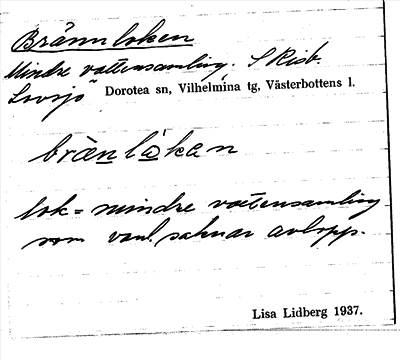 Brännloken
Mindre vattensamling. S Risb.
Lovsjö Dorotea sn, Vilhelmina tg, Västerbottens l.
brænlåkan
lok = mindre vattensamling
som vanl. saknar avlopp.
Lisa Lidberg 1937.